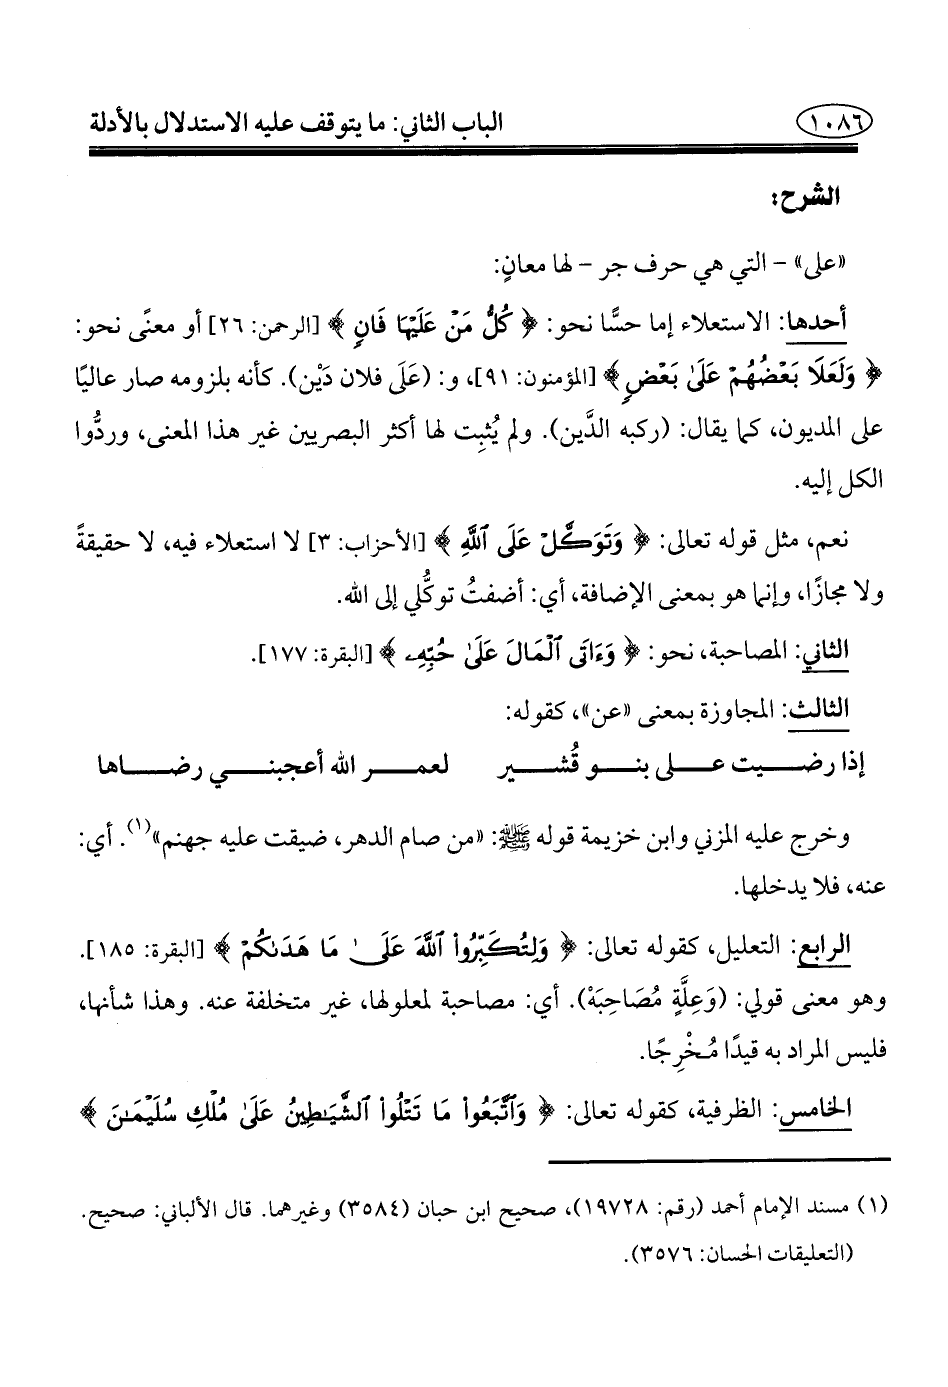 ١٠٨٦ الباب الثاني: ما يتوقف عليه الاستدلال بالأدلة
الشرح:
«على» - التي هي حرف جر - لها معانٍ:
أحدها: الاستعلاء إما حسًّا نحو: ﴿ كُلُّ مَنْ عَلَيْهَا فَانٍ ﴾ [الرحمن: ٢٦] أو معنًى نحو:
﴿ وَلَعَلَا بَعْضُهُمْ عَلَىٰ بَعْضٍ ﴾ [المؤمنون: ٩١]، و: (عَلَى فلان دَيْن). كأنه بلزومه صار عاليًا
على المديون، كما يقال: (ركبه الدَّين). ولم يُثبِت لها أكثر البصريين غير هذا المعنى، وردُّوا
الكل إليه.
نعم، مثل قوله تعالى: ﴿ وَتَوَكَّلْ عَلَى ٱللَّهِ ﴾ [الأحزاب: ٣] لا استعلاء فيه، لا حقيقةً
ولا مجازًا، وإنما هو بمعنى الإضافة، أي: أضفتُ توكُّلي إلى الله.
الثاني: المصاحبة، نحو: ﴿ وَءَاتَى ٱلْمَالَ عَلَىٰ حُبِّهِۦ ﴾ [البقرة: ١٧٧].
الثالث: المجاوزة بمعنى «عن»، كقوله:
إذا رضـــيت عـــلى بنـــو قُشـــير لعمـــر الله أعجبنـــي رضـــاها
وخرج عليه المزني وابن خزيمة قوله ﷺ: «من صام الدهر، ضيقت عليه جهنم»(١). أي:
عنه، فلا يدخلها.
الرابع: التعليل، كقوله تعالى: ﴿ وَلِتُكَبِّرُوا۟ ٱللَّهَ عَلَىٰ مَا هَدَىٰكُمْ ﴾ [البقرة: ١٨٥].
وهو معنى قولي: (وَعِلَّةٍ مُصَاحِبَهْ). أي: مصاحبة لمعلولها، غير متخلفة عنه. وهذا شأنها،
فليس المراد به قيدًا مُخْرِجًا.
الخامس: الظرفية، كقوله تعالى: ﴿ وَٱتَّبَعُوا۟ مَا تَتْلُوا۟ ٱلشَّيَـٰطِينُ عَلَىٰ مُلْكِ سُلَيْمَـٰنَ ﴾
(١) مسند الإمام أحمد (رقم: ١٩٧٢٨)، صحيح ابن حبان (٣٥٨٤) وغيرهما. قال الألباني: صحيح.
(التعليقات الحسان: ٣٥٧٦).